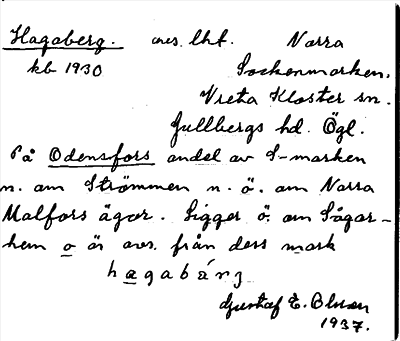 Hagaberg. avs. lht. Norra
kb 1930 Sockenmarken.
Vreta Kloster sn.
Gullbergs hd. Ögl.
På Odensfors andel av S-marken
n. om Strömmen n. ö. om Norra
Malfors ägor. Ligger ö. om Sågar-
hem o är avs. från dess mark
hagabárg
Gustaf E. Olsson
1937.